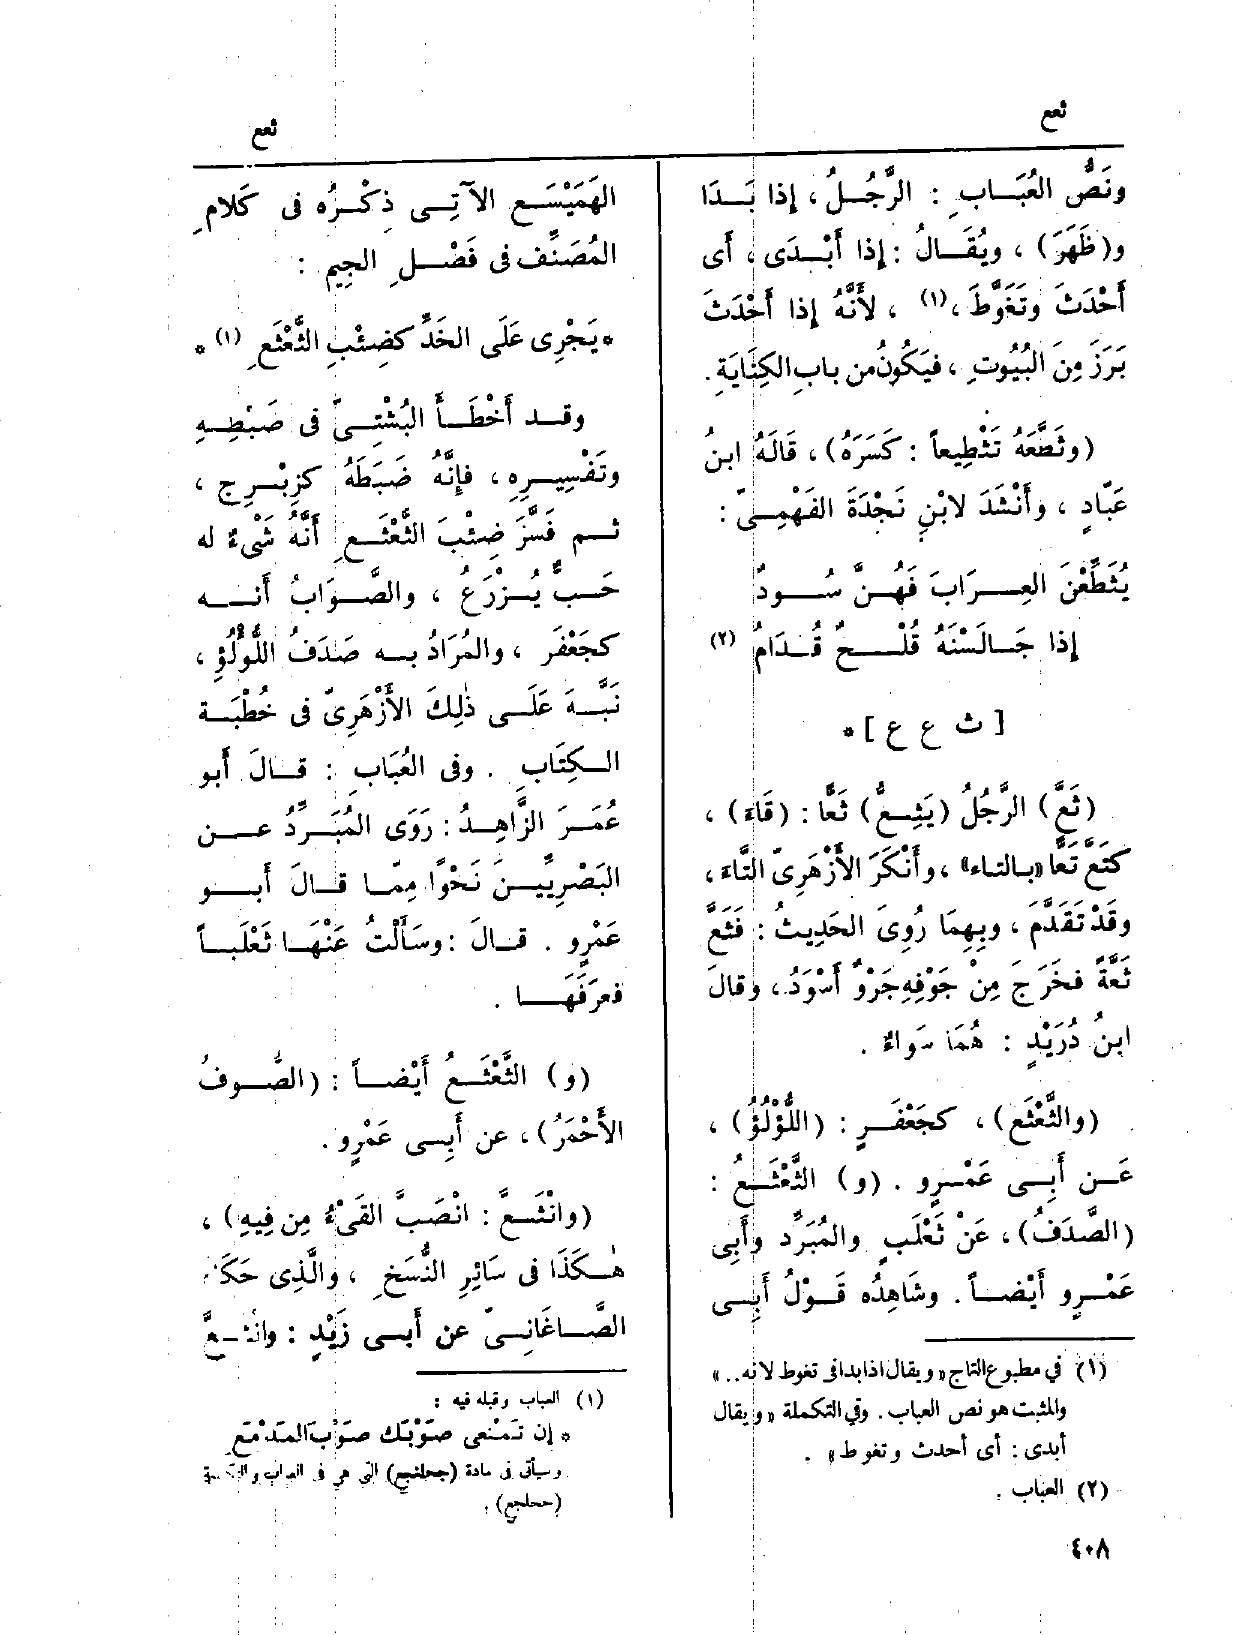 ثعع
ثعع
ونَصُّ العُبَـابِ : الرَّجُـلُ ، إذا بَـدَا
و(ظَهَرَ) ، ويُقَـالُ : إذا أَبْـدَى ، أَى
أَحْدَثَ وتَغَوَّطَ ،(١) ، لأَنَّهُ إذا أَحْدَثَ
بَرَزَ مِنَ البُيُوتِ ، فيَكُونُ من بابِ الكِنَايَةِ .
(وثَطَّعَهُ تَثْطِيعاً : كَسَرَهُ) ، قالَهُ ابنُ
عَبّادٍ ، وأَنْشَدَ لابْنِ نَجْدَةَ الفَهْمِـىّ :
يُثَطِّعْنَ العِـرَابَ فَهُـنَّ سُـودٌ
إذا جَـالَسْنَهُ قُلْـحٌ قُـدَامُ (٢)
[ ث ع ع ] *
(ثَعَّ) الرَّجُلُ (يَثِـعُّ) ثَعًّا : (قَاءَ) ،
كتَعَّ تَعًّا «بـالتـاء» ، وأَنْكَرَ الأَزْهَرِىّ التّاءَ ،
وقَدْ تَقَدَّمَ ، وبِهِمَا رُوِىَ الحَدِيثُ : فثَعَّ
ثَعَّةً فخَرَجَ مِنْ جَوْفِهِ جَرْوٌ أَسْوَدُ ، وقالَ
ابنُ دُرَيْدٍ : هُمَا سَواءٌ .
(والثَّعْثَع) ، كجَعْفَـرٍ : (اللُّؤْلُؤُ) ،
عَـن أَبِـى عَمْـرٍو . (و) الثَّعْثَـعُ :
(الصَّدَفُ) ، عَنْ ثَعْلَبٍ والمُبَرِّد وأَبِى
عَمْـرٍو أَيْضـاً . وشَاهِدُه قَـوْلُ أَبِـى
(١) في مطبوع التاج « ويقال اذا بدا فى تغوط لانه .. »
والمثبت هو نص العباب . وفي التكملة « ويقال
أبدى : أى أحدث وتغوط » .
(٢) العباب .
٤٠٨
الهَمَيْسَـعِ الآتِـى ذِكْـرُه فى كَلامِ
المُصَنِّف فى فَصْـلِ الجِيمِ :
* يَجْرِى عَلَى الخَدِّ كضِئْبِ الثَّعْثَعِ (١) *
وقـد أَخْطَـأَ البُشْتِـىّ فى ضَبْطِـهِ
وتَفْسِيـرِهِ ، فإنَّهُ ضَبَطَهُ كزِبْـرِجٍ ،
ثـم فَسَّرَ ضِئْبَ الثَّعْثَـعِ أَنَّهُ شَىْءٌ له
حَـبٌّ يُـزْرَعُ ، والصَّـوَابُ أَنـه
كجَعْفَر ، والمُرَادُ بـه صَدَفُ اللُّؤْلُؤِ ،
نَبَّـهَ عَلَـى ذٰلِكَ الأَزْهَرِىّ فى خُطْبَـةِ
الـكِتَابِ . وفى العُبَابِ : قـالَ أَبو
عُمَـرَ الزَّاهِـدُ : رَوَى المُبَـرِّدُ عـن
البَصْرِيِّيـنَ نَحْوًا مِمّـا قـالَ أَبـو
عَمْرٍو . قـالَ : وسَأَلْتُ عَنْهَـا ثَعْلَبـاً
فعرَفَهَـا .
(و) الثَّعْثَـعُ أَيْضـاً : (الصُّـوفُ
الأَحْمَرُ) ، عن أَبِـى عَمْرٍو .
(وانْثَـعَّ : انْصَبَّ القَىْءُ مِن فِيهِ) ،
هٰـكَذَا فى سَائِرِ النُّسَخِ ، والَّذِى حَكَاهُ
الصّـاغَانِـىّ عن أَبـى زَيْدٍ : وانْثَـعَّ
(١) العباب وقبله فيه :
* إن تَمْنَعى صَوْبَك صَوْبَ المَدْمَعِ
وسيأتى فى مادة (جحلنجع) التى هى فى العباب والتكملة
(جحلجع) .